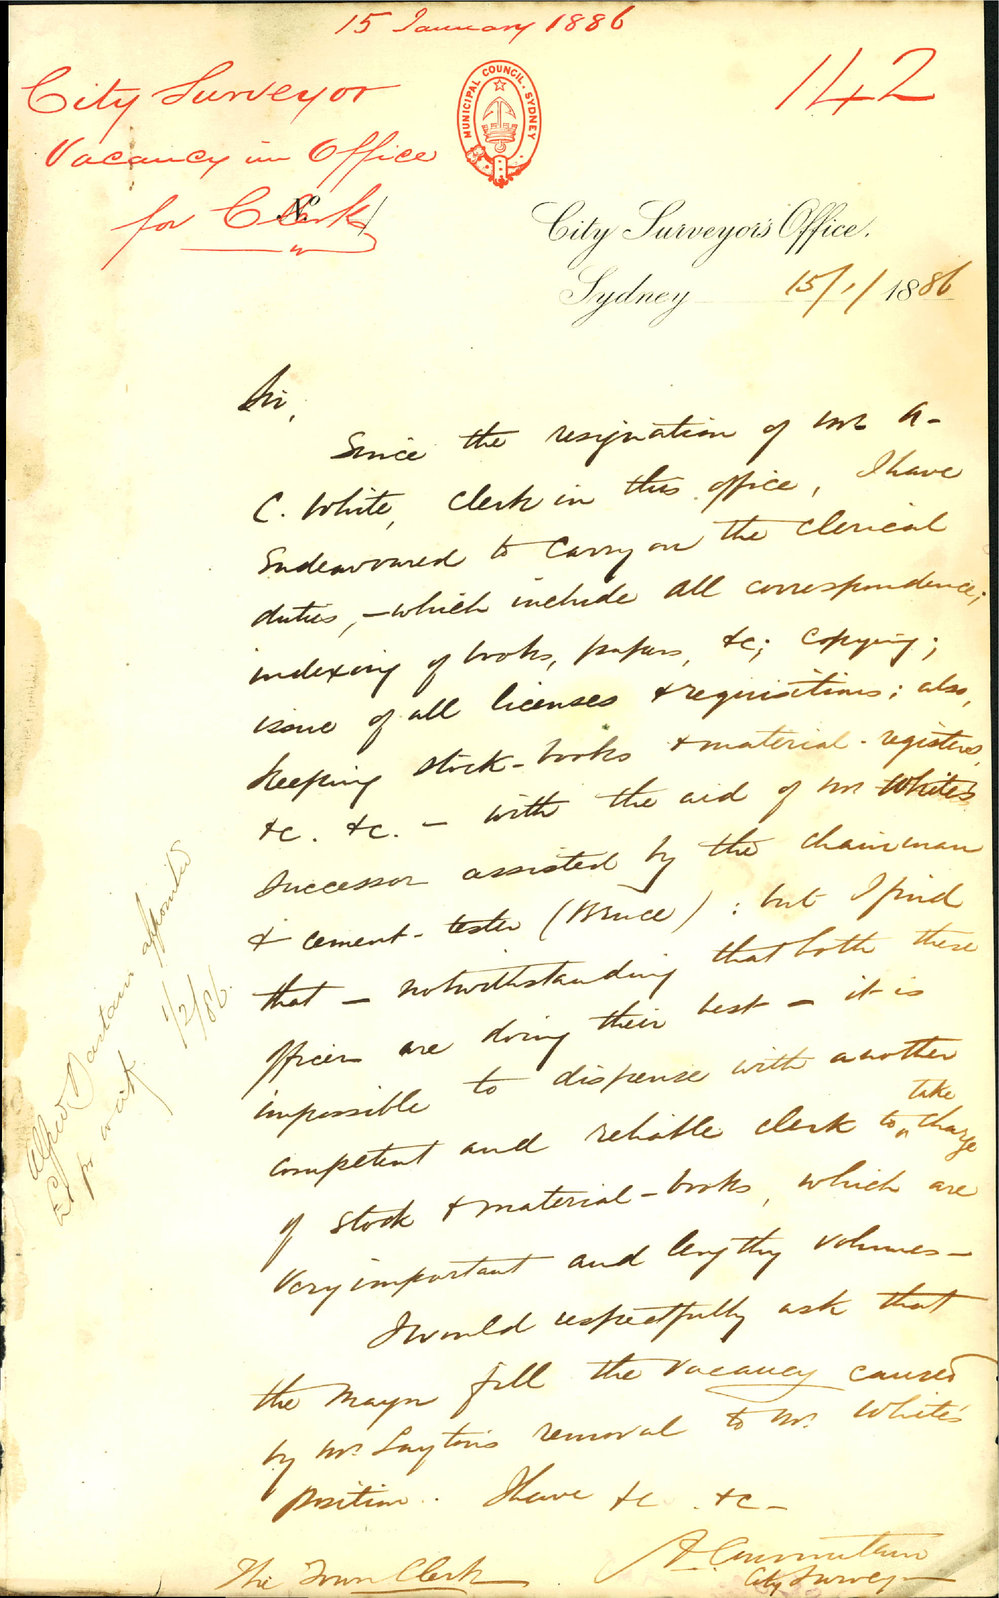 15 January 1886
142
City Surveyor
Vacancy in Office
for Clerk
MUNICIPAL COUNCIL. SYDNEY
No.
City Surveyor's Office.
Sydney 15/1/1886
Sir,
Since the resignation of Mr A-
C. White, Clerk in this office, I have
Endeavoured to carry on the clerical
duties, - which include all correspondence;
indexing of books, papers, &c; copying;
issue of all licenses & requisitions; also,
keeping stock-books & material-registers,
&c. &c. - with the aid of Mr White's
successor assisted by the chainman
& cement-tester (Bruce) : but I find
that - notwithstanding that both these
officers are doing their best - it is
impossible to dispense with another
competent and reliable clerk to take charge
of stock & material-books, which are
very important and lengthy volumes -
I would respectfully ask that
the Mayor fill the vacancy caused
by Mr Layton's removal to Mr. White's
position. I have &c. &c -
City Surveyor
The Town Clerk
Alfred appointed
1/2/86.